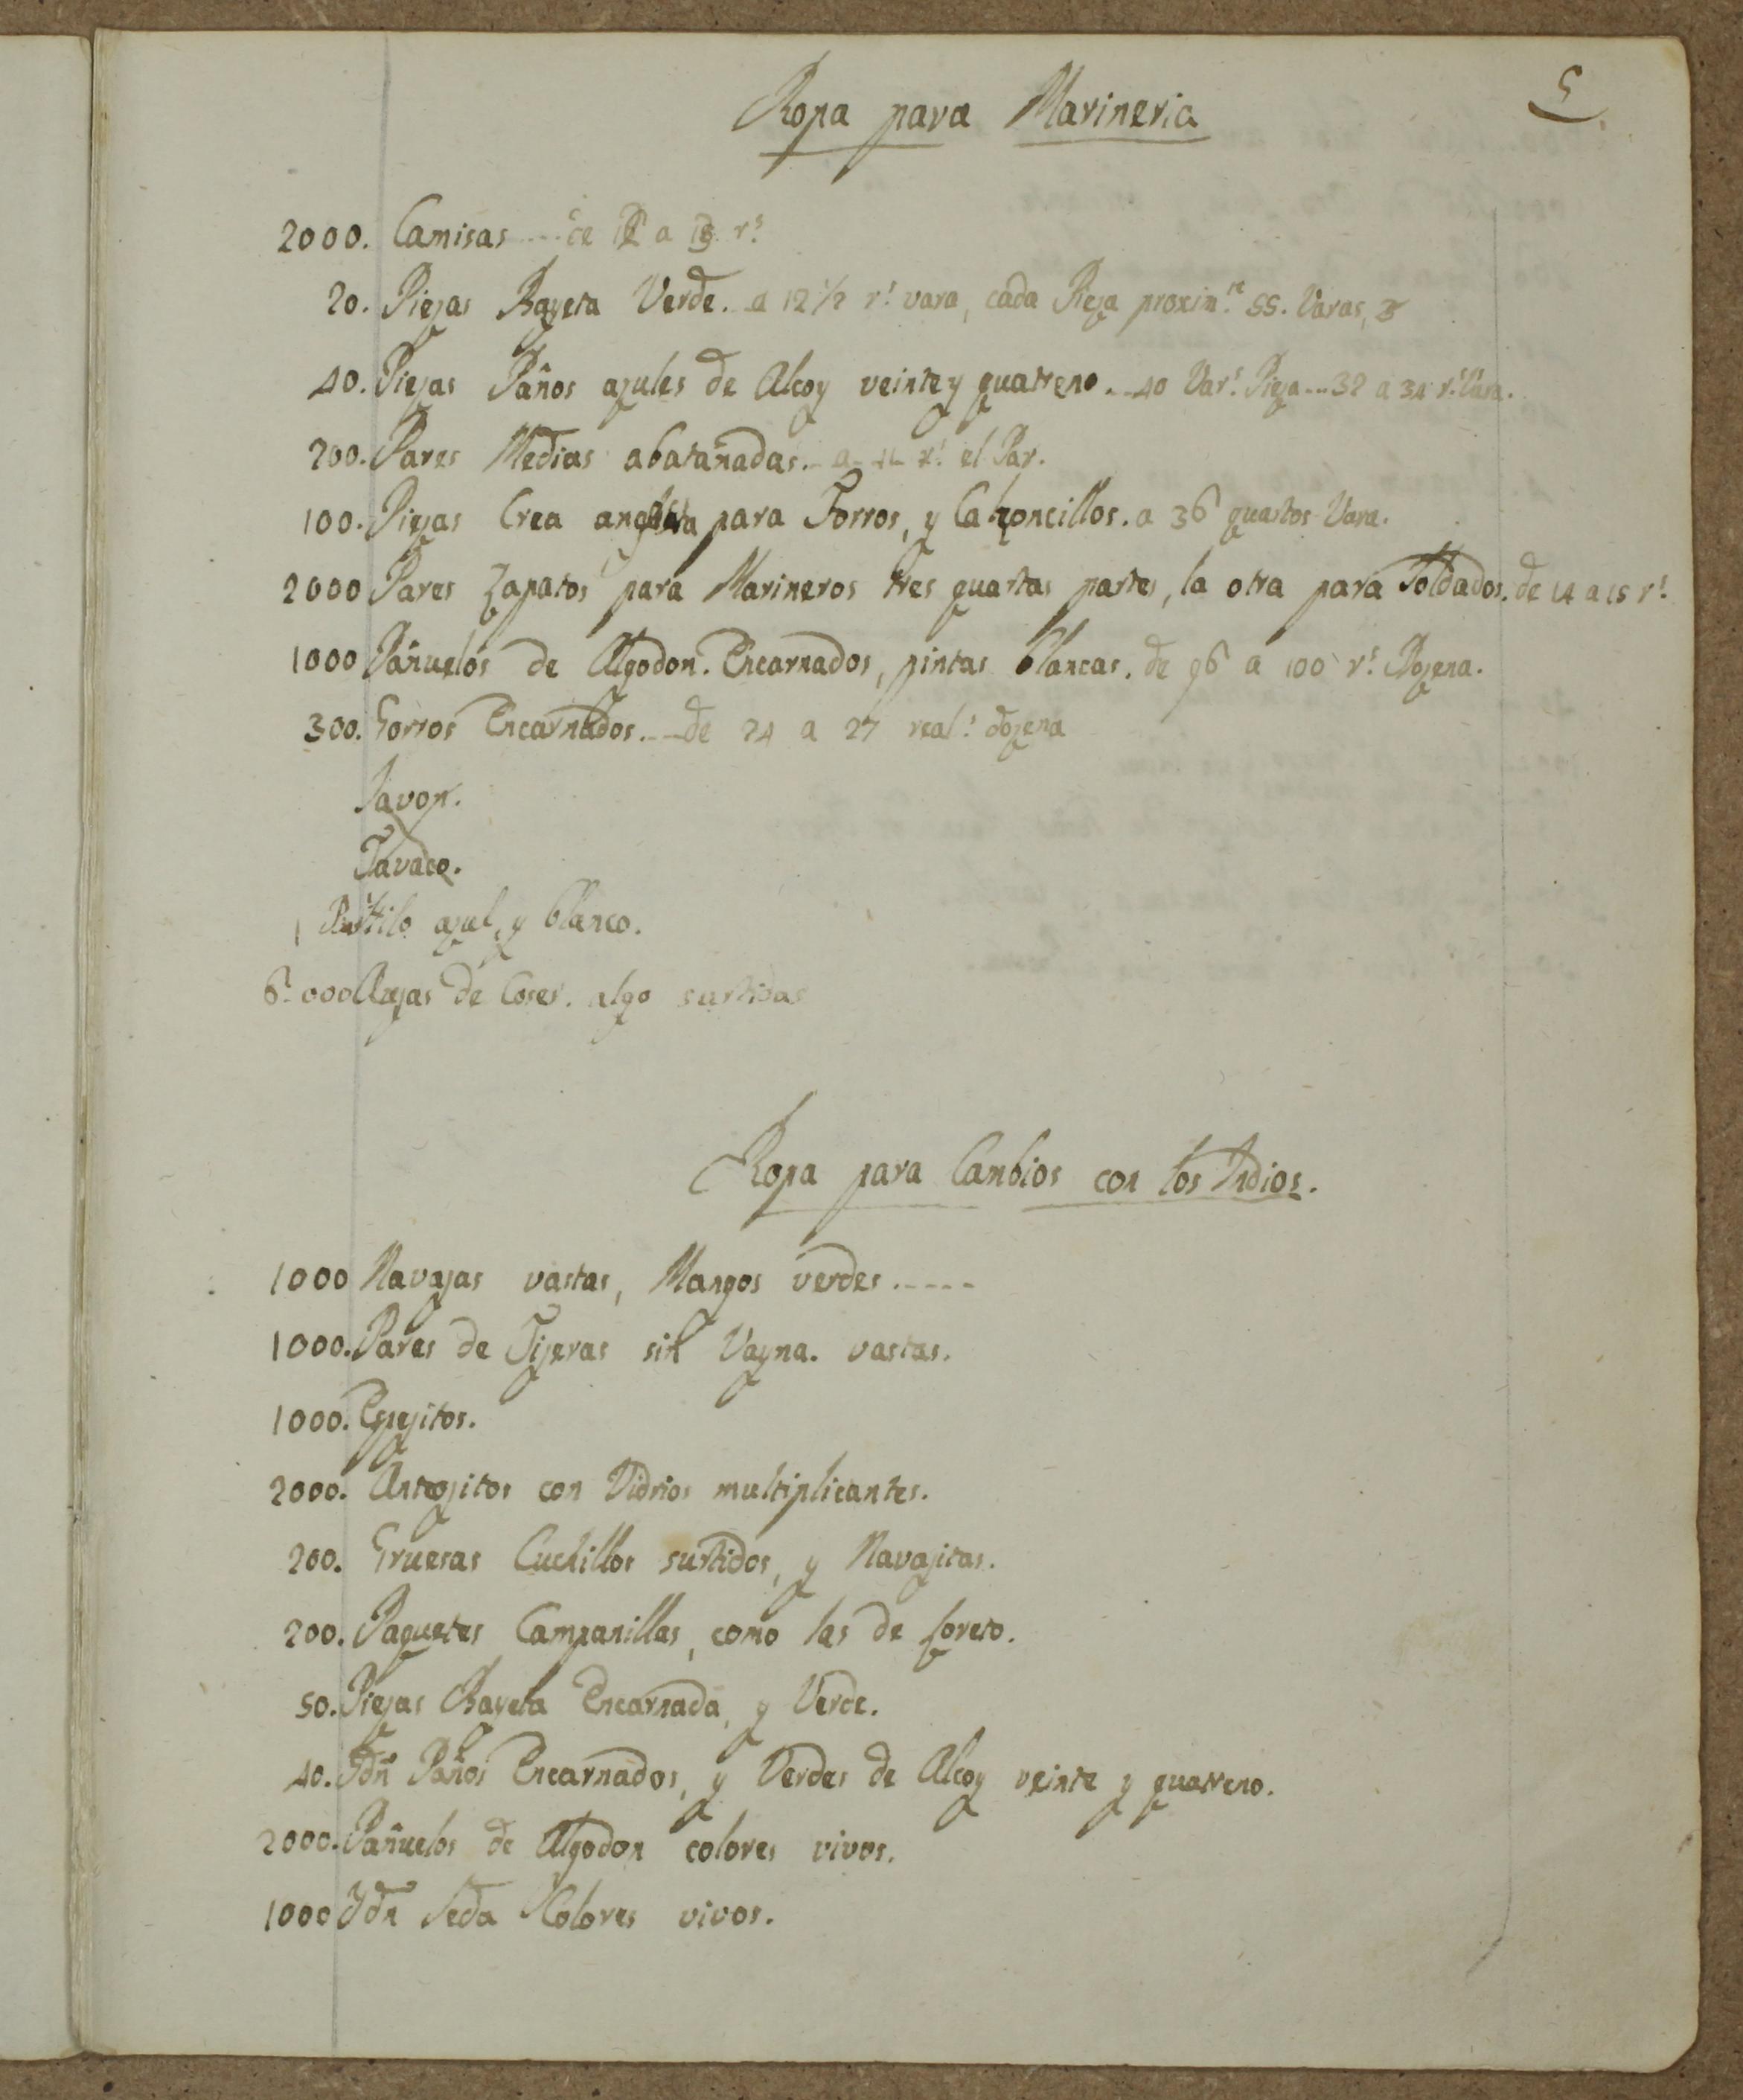 5
Ropa para Marineria
2000. Camisas .... de a rs
20. Piezas Bayeta Verde. a 12 1/2 rs vara, cada Pieza proximte 55. Varas,
40. Piezas Paños azules de Alcoy veinte y quatreno. .. 40 Vars Pieza ... 32 a 34 rs Vara.
200. Pares Medias abatañadas. a rs el Par.
100. Piezas Crea para Forros, y Calzoncillos. a 36 quartos Vara.
2000 Pares Zapatos para Marineros tres quartas partes, la otra para Soldados. de 14 a 15 rs
1000 Pañuelos de Algodon. Encarnados, pintas blancas. de 96 a 100 rs Dozena.
300. Gorros Encarnados. ... de 24 a 27 reals dozena
Javon.
Tavaco.
azul, y blanco.
6.000 Aujas de Coser. algo surtidas
Ropa para Cambios con los Indios.
1000 Navajas vastas, Mangos verdes .....
1000. Pares de Tijeras sin Vayna. vastas.
1000. Espejitos.
2000. Anteojitos con Vidrios multiplicantes.
200. Gruesas Cuchillos surtidos, y Navajitas.
200. Paquetes Campanillas, como las de Loreto.
50. Piezas Bayeta Encarnada, y Verde.
40. Ydn Paños Encarnados, y Verdes de Alcoy veinte y quatreno.
2000. Pañuelos de Algodon colores vivos.
1000 Ydn Seda Colores vivos.